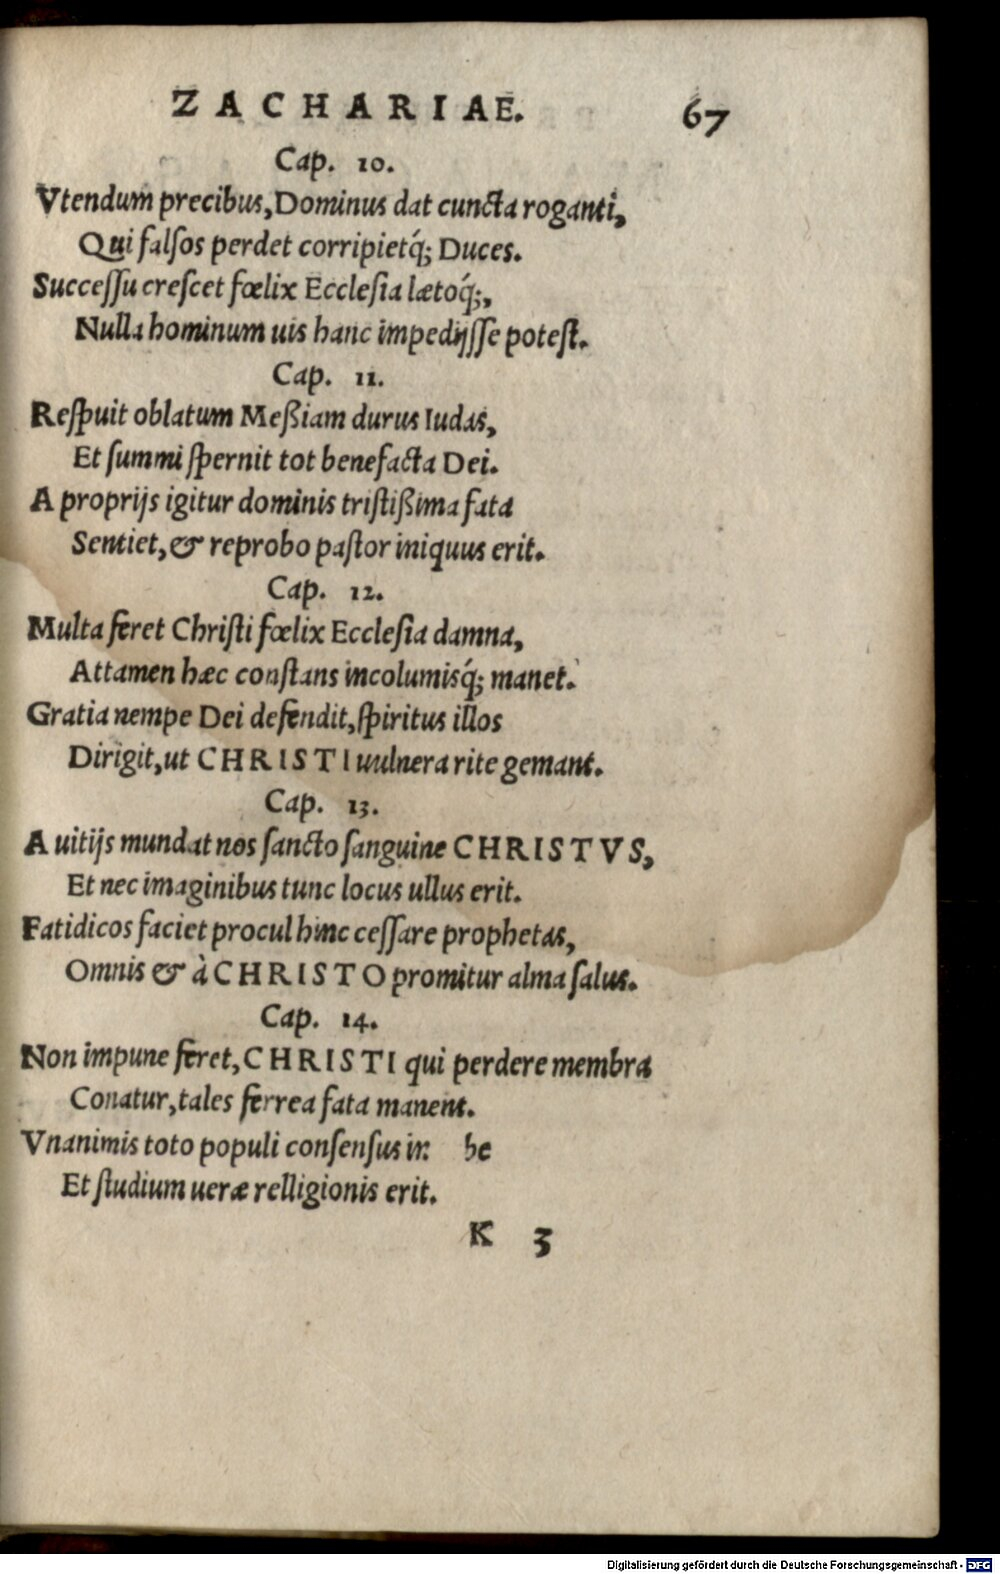 ZACHARIAE. 67
Cap. 10.
Vtendum precibus, Dominus dat cuncta roganti,
Qui falſos perdet corripietq́; Duces.
Succeſſu creſcet fœlix Eccleſia lætoq́;,
Nulla hominum uis hanc impedijſſe poteſt.
Cap. 11.
Reſpuit oblatum Meßiam durus Iudas,
Et ſummi ſpernit tot benefacta Dei.
A proprijs igitur dominis triſtißima fata
Sentiet, & reprobo paſtor iniquus erit.
Cap. 12.
Multa feret Chriſti fœlix Eccleſia damna,
Attamen hæc conſtans incolumisq́; manet.
Gratia nempe Dei defendit, ſpiritus illos
Dirigit, ut CHRISTI uulnera rite gemant.
Cap. 13.
A uitijs mundat nos ſancto ſanguine CHRISTVS,
Et nec imaginibus tunc locus ullus erit.
Fatidicos faciet procul hinc ceſſare prophetas,
Omnis & à CHRISTO promitur alma ſalus.
Cap. 14.
Non impune feret, CHRISTI qui perdere membra
Conatur, tales ferrea fata manent.
Vnanimis toto populi conſenſus in be
Et ſtudium ueræ relligionis erit.
K 3
Digitalisierung gefördert durch die Deutsche Forschungsgemeinschaft - DFG